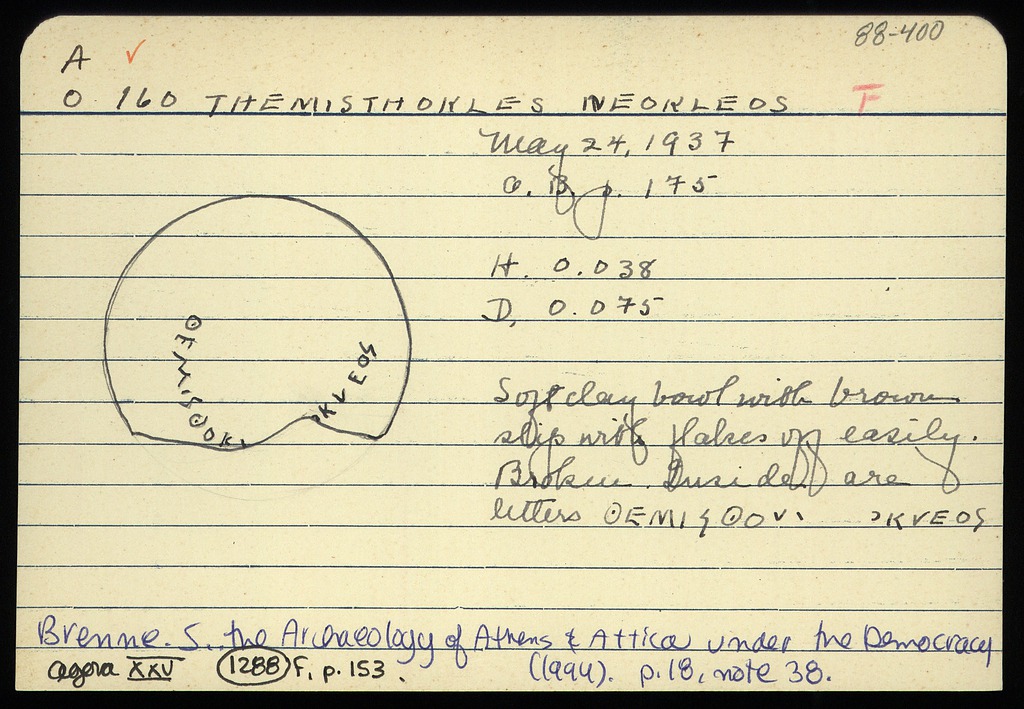 88-400
A ✓
O 160 THEMISTHOKLES NEOKLEOS F
May 24, 1937
O. B. p. 175
H. 0.038
D. 0.075
ΘEMISΘOK
KVEOS
Soft clay bowl with brown
slip with flakes off easily.
Broken. Inside are
letters ΘEMISΘOV KVEOS
Brenne. S. the Archaeology of Athens & Attica under the Democracy
(1994). p.18, note 38.
Agora XXV 1288 F, p. 153.